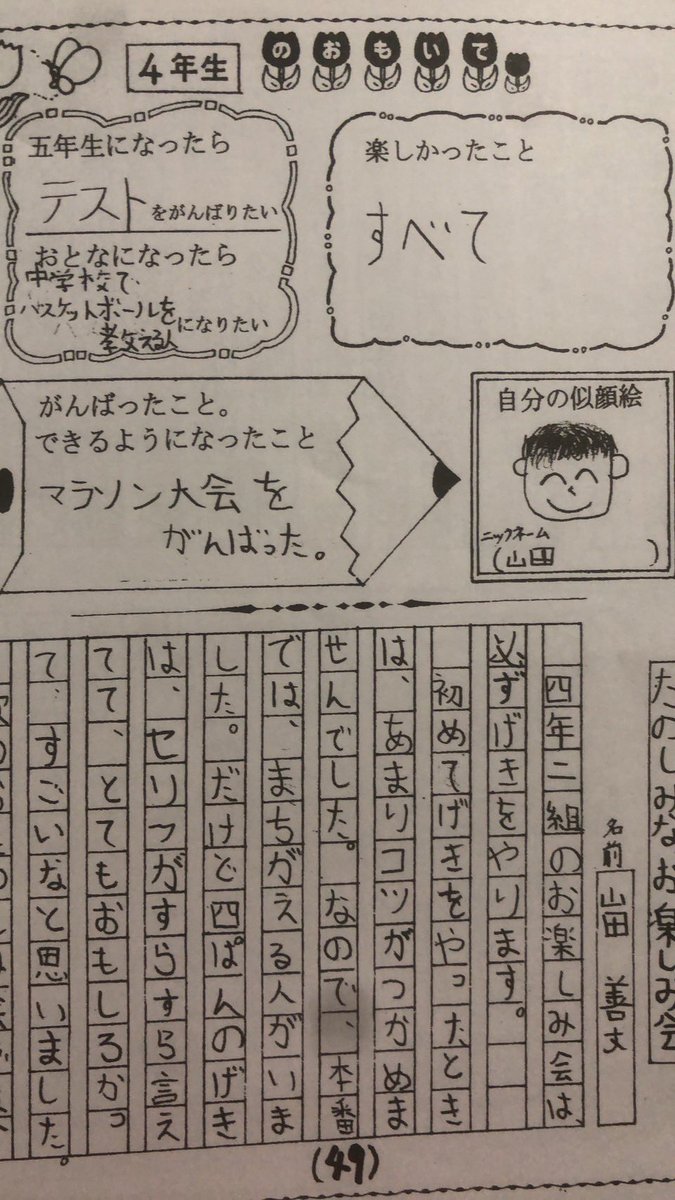 4年生 のおもいて
五年生になったら
テストをがんばりたい
おとなになったら
中学校で
バスケットボールを
教える人になりたい
楽しかったこと
すべて
がんばったこと。
できるようになったこと
マラソン大会を
がんばった。
自分の似顔絵
ニックネーム
(山田)
たのしみなお楽しみ会
名前 山田 善文
四年二組のお楽しみ会は、
必ずげきをやります。
初めてげきをやったとき
は、あまりコツがつかめま
せんでした。なので、本番
では、まちがえる人がいま
した。だけど四ぱんのげき
は、セリフがすらすら言え
てて、とてもおもしろかっ
て、すごいなと思いました。
(49)